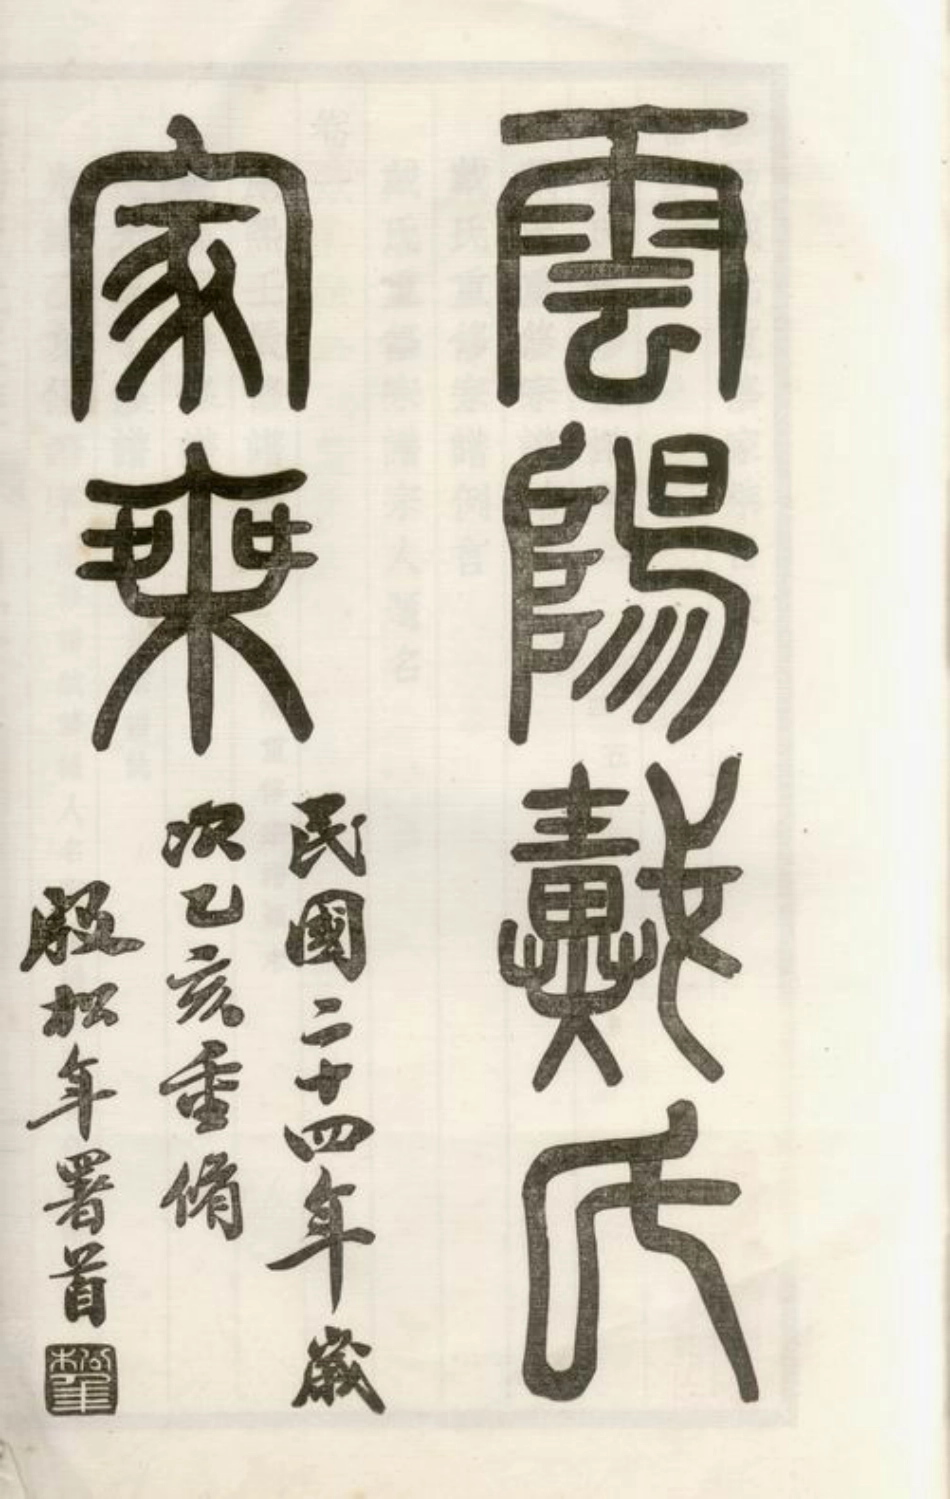 雲陽戴氏
家乘
民國二十四年歲
次乙亥重脩
殷松年署首
松年